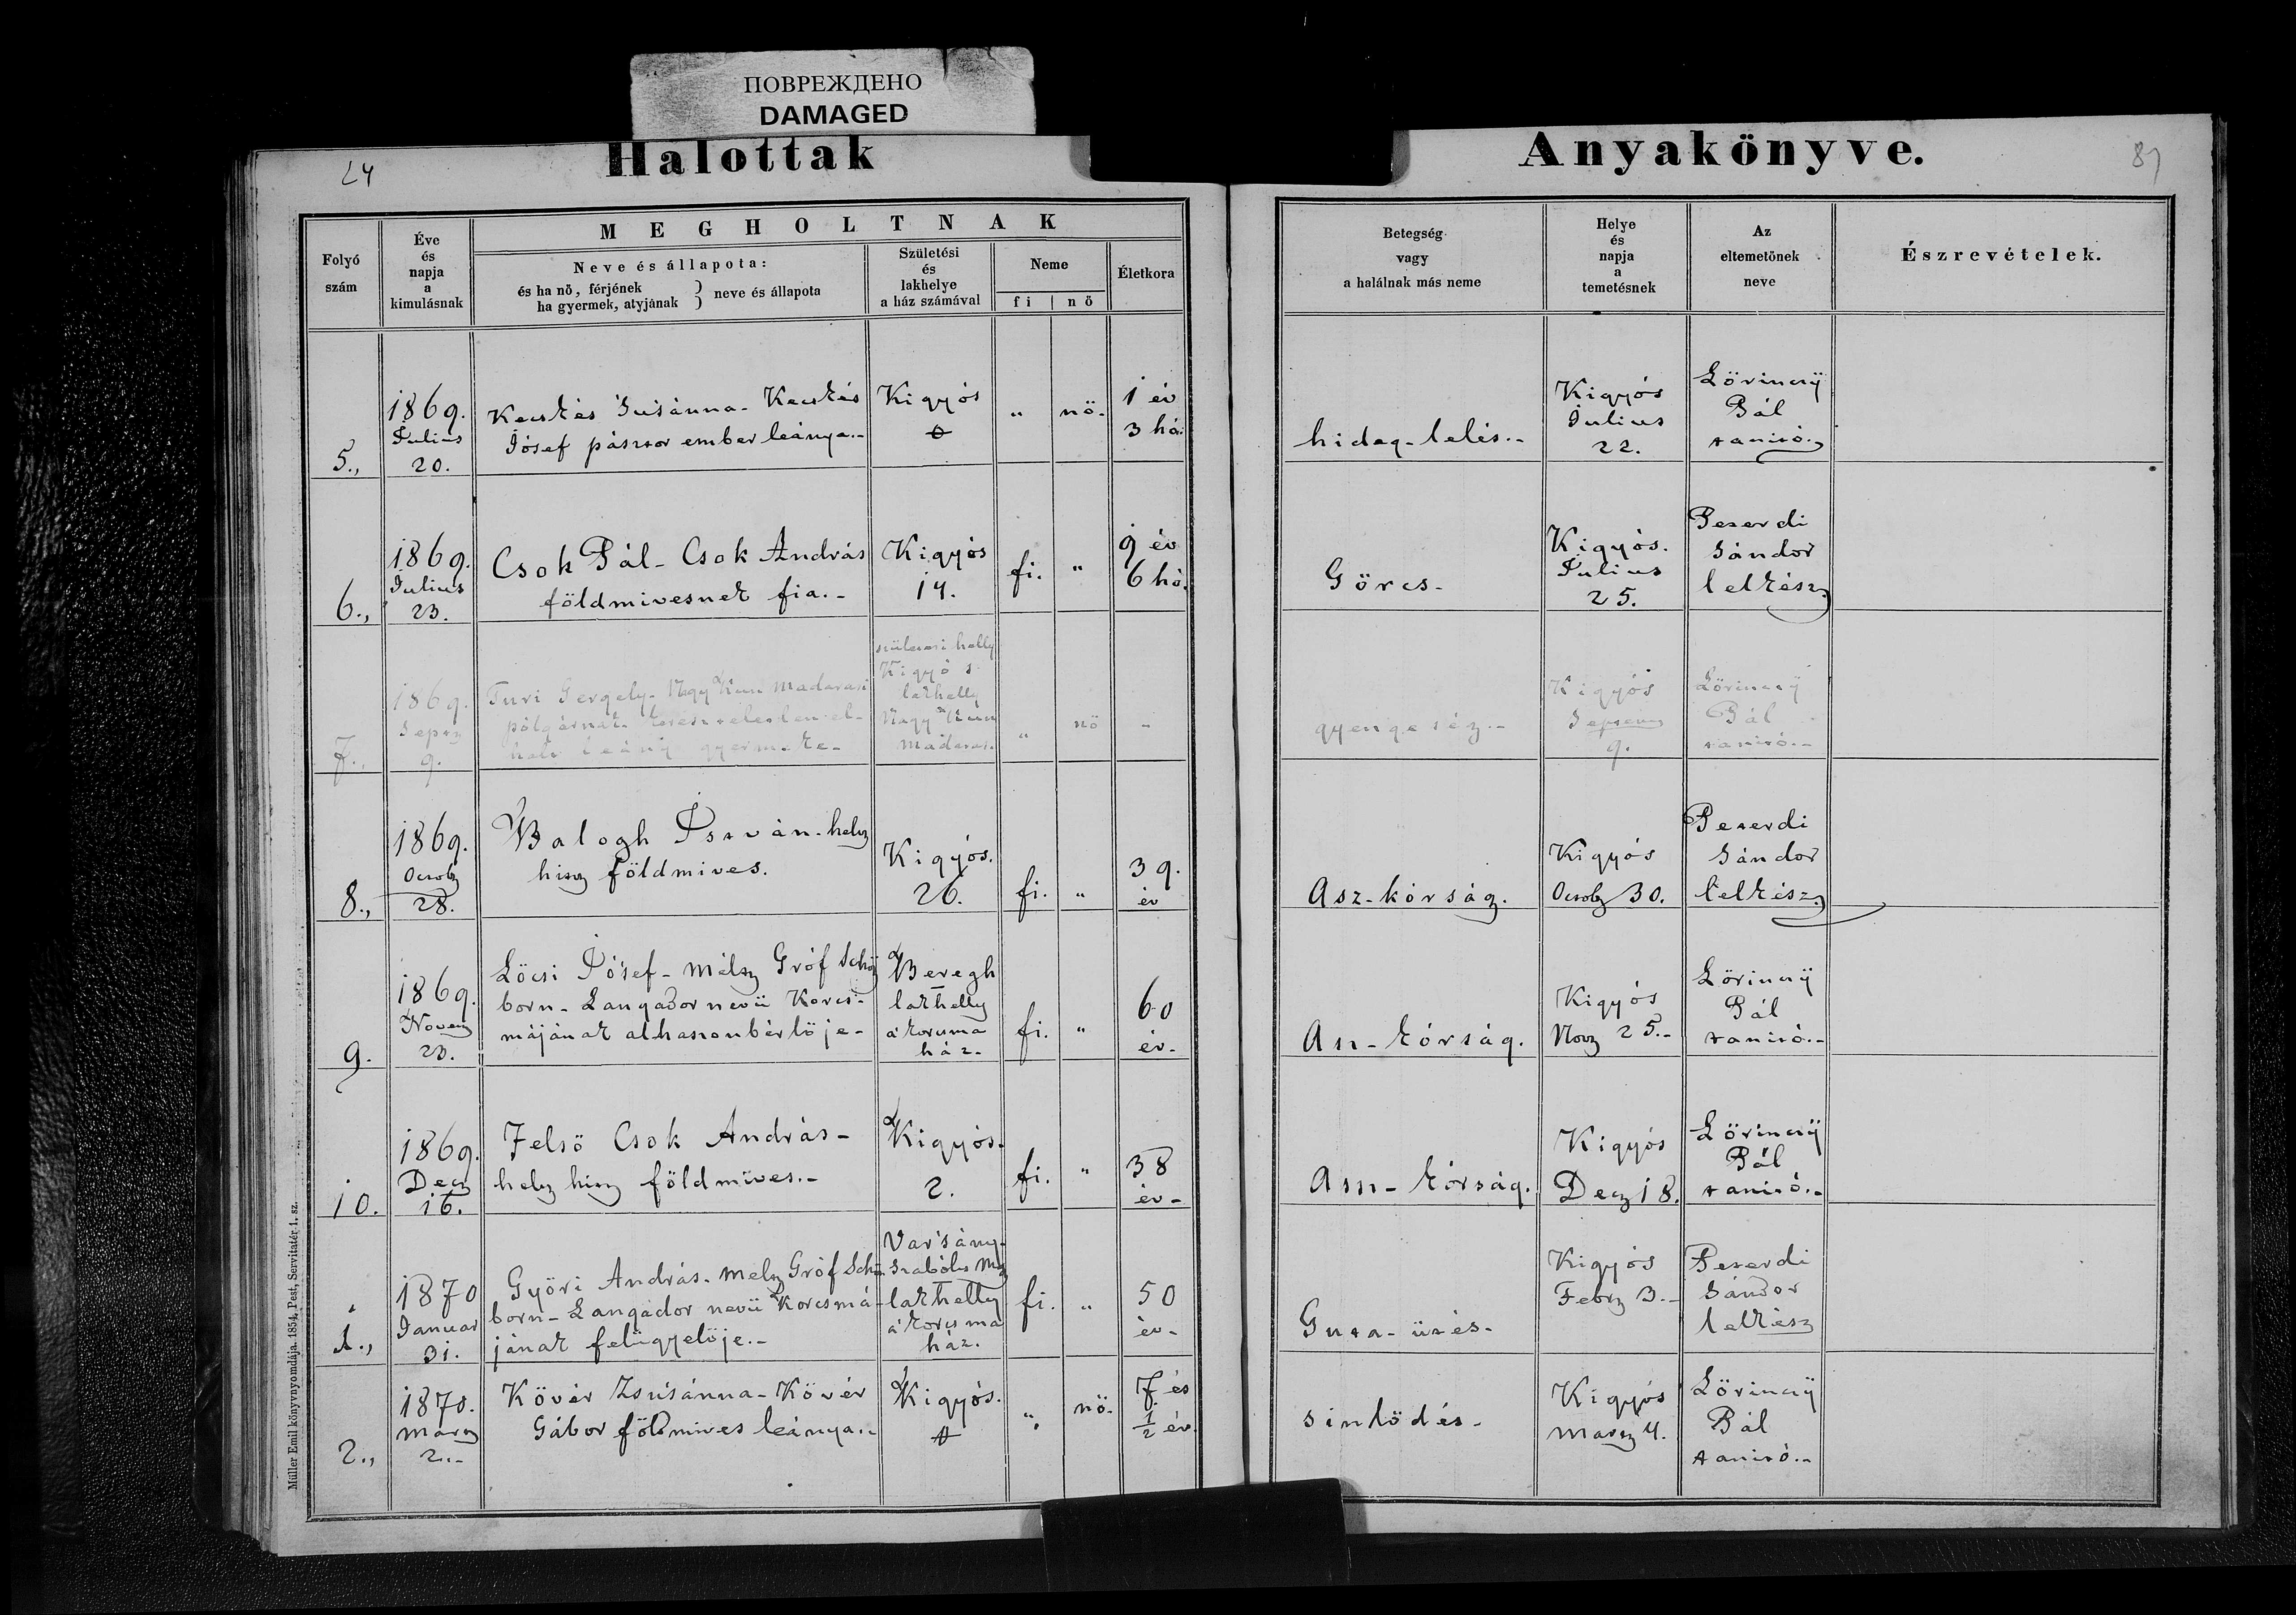 ПОВРЕЖДЕНО
DAMAGED
24
Halottak
Anyakönyve.
87
Folyó
szám
Éve
és
napja
a
kimulásnak
MEGHOLTNAK
Neve és állapota:
és ha nö, férjének
ha gyermek, atyjának } neve és állapota
Születési
és
lakhelye
a ház számával
Neme
fi | nö
Életkora
Betegség
vagy
a halálnak más neme
Helye
és
napja
a
temetésnek
Az
eltemetönek
neve
Észrevételek.
5.,
1869.
Julius
20.
Kecskés Susánna - Kecskés
Jósef pásztor ember leánya.-
Kigyós
0
„
nö.
1 év
3 hó.
hideg-lelés.-
Kigyós
Julius
22.
Lörinczÿ
Pál
tanitó.
6.,
1869.
Julius
23.
Csok Pál - Csok András
földmivesnek fia.-
Kigyós
14.
fi.
„
9 év
6 hó.
Görcs-
Kigyós.
Julius
25.
Peserdi
Sándor
lelkész
7.,
1869.
Sept
9.
Turi Gergely - Nagy Kun Madarasi
pólgárnak
leány gyermeke-
születési helly
Kigyós
lakhelly
Nagy Kun
Madaras.
„
nö
-
gyengeség.-
Kigyós
9.
Lörinczÿ
Pál
tanitó.-
8.,
1869.
Octob
28.
Balogh István - helv
hitv földmives.
Kigyós.
26.
fi.
„
39.
év
Asz-kórság.
Kigyós
Octob 30.
Peserdi
Sándor
lelkész
9.
1869.
Novem
23.
Löcsi Jósef - mélts Gróf Schön
born - Langador nevü Korcs-
májának alhaszonbérlöje-
Beregh
lakhelly
a' korcsma
ház-
fi.
„
60
év-
Asz-kórság.
Kigyós
Nov 25.-
Lörinczÿ
Pál
tanitó.-
10.
1869.
Dec
16.
Felsö Csok András-
helv hitv földmives.-
Kigyós-
2.
fi.
„
38
év-
Asz-kórság.
Kigyós
Dec 18.
Lörinczÿ
Pál
tanitó.-
1.,
1870
Januar
31.
Györi András - melts Gróf Schön
born - Langador nevü Korcsmá-
jának felügyelöje.-
Varsány-
Szabólcs M
lakhelly
a' korcsma
ház.
fi.
„
50
év-
Guta-ütés-
Kigyós
Febr 3.-
Peserdi
Sándor
lelkész
2.,
1870.
Marcz
2.-
Kövér Zsusánna - Kövér
Gábor földmives leánya.-
Kigyós.
0
„
nö.
7 és
1/2 év.
sinlödés-
Kigyós
Marcz 4.
Lörinczÿ
Pál
tanitó.-
Müller Emil könyvnyomdája. 1854, Pest, Servitatér 1. sz.